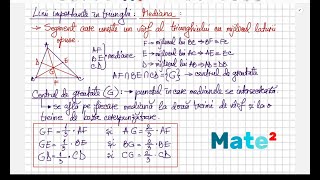 Linii importante în triunghi: Mediana
→ Segment care unește un vârf al triunghiului cu mijlocul laturii opuse.
A
AF
BE mediane
CD
F → mijlocul lui BC ⇒ BF = FC
E → mijlocul lui AC ⇒ AE = EC
D → mijlocul lui AB ⇒ AD = DB
AF ∩ BE ∩ CD = {G} → centrul de greutate
Centrul de greutate (G): → punctul în care medianele se intersectează
→ se află pe fiecare mediană la două treimi de vârf și la o
treime de baza corespunzătoare.
GF = 1/3 · AF și AG = 2/3 · AF
GE = 1/3 · BE și BG = 2/3 · BE
GD = 1/3 · CD și CG = 2/3 · CD
Mate²